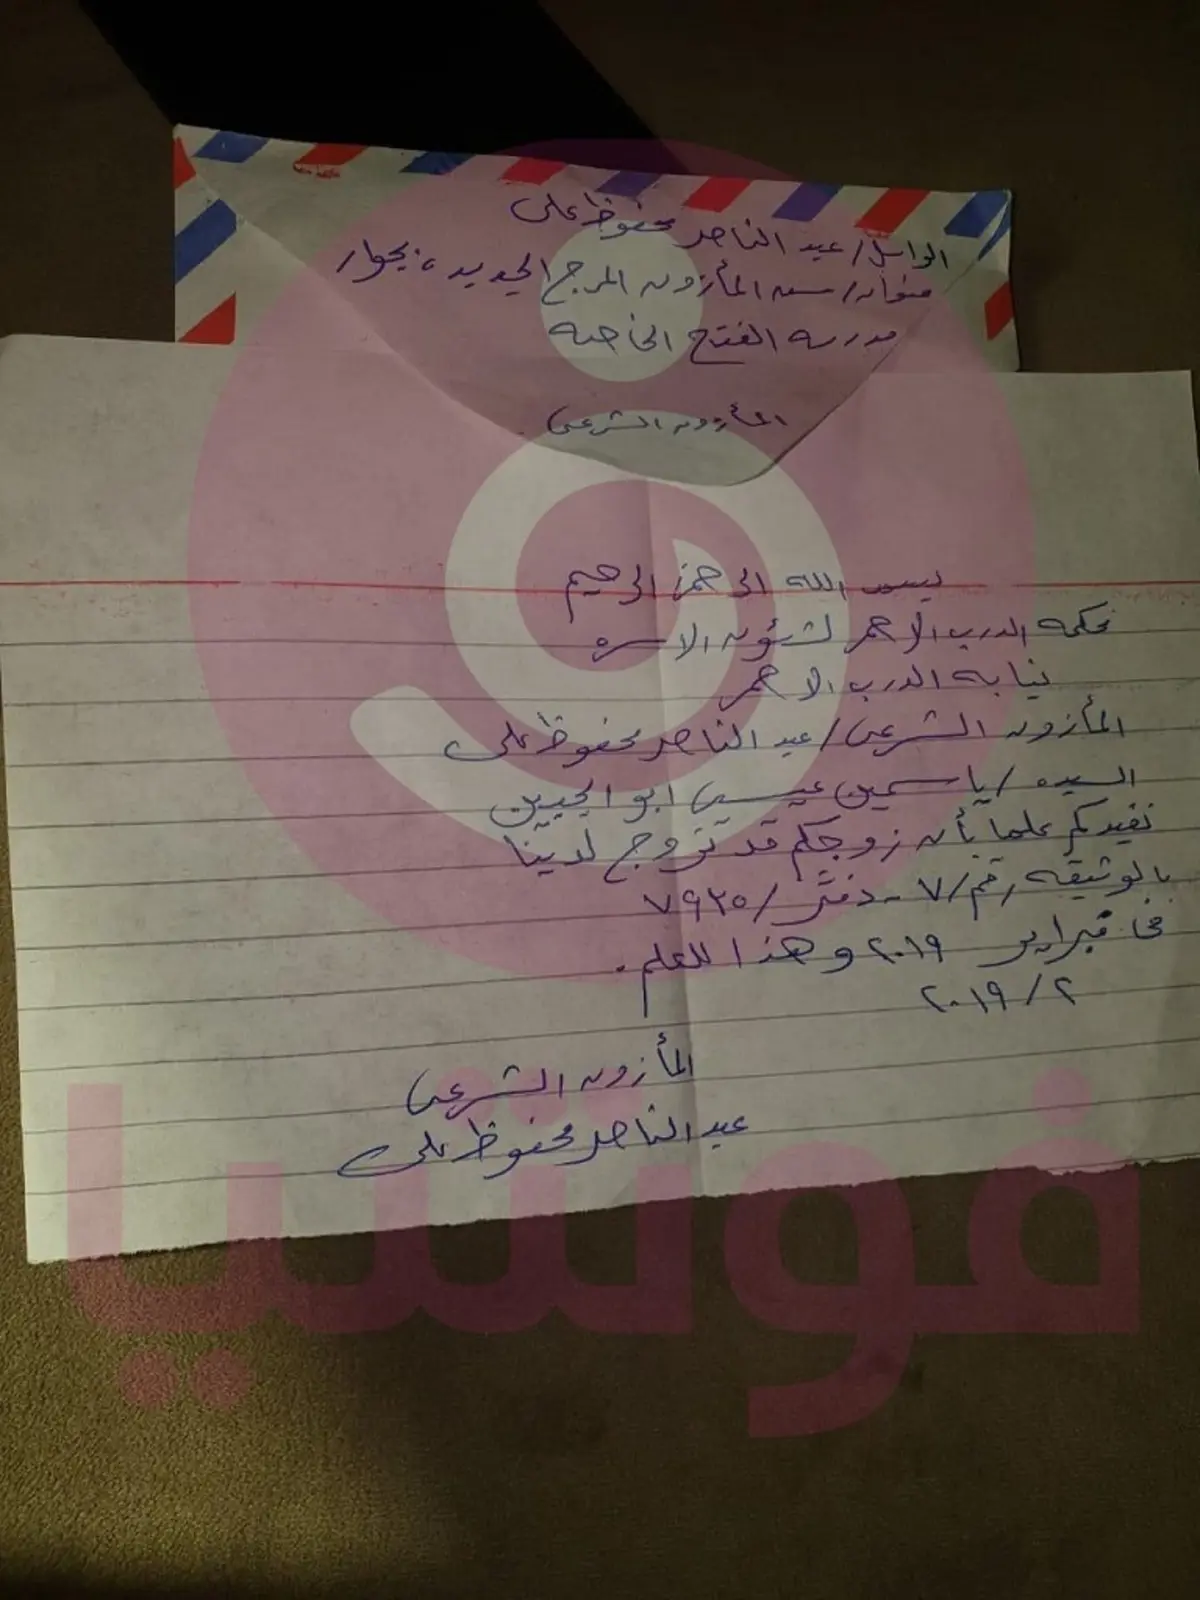 الراسل/عبد الناصر محفوظ على
عنوانه/ سكن المأذون المرج الجديد، بجوار
مدرسه الفتح الخاصه
المأذون الشرعى
بسم الله الرحمن الرحيم
محكمه الدرب الاحمر لشئون الاسره
نيابه الدرب الاحمر
المأذون الشرعى/عبد الناصر محفوظ على
السيده/ياسمين عيسى ابو الجبين
نفيدكم علما بأن زوجكم قد تزوج لدينا
بالوثيقه رقم/٧ - دفتر/٧٩٢٥
فى فبراير ٢٠١٩ وهذا للعلم.
٢٠١٩/٢
المأذون الشرعى
عبد الناصر محفوظ على
فوشيا